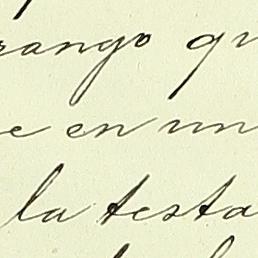 rango qu
e en un
la testa